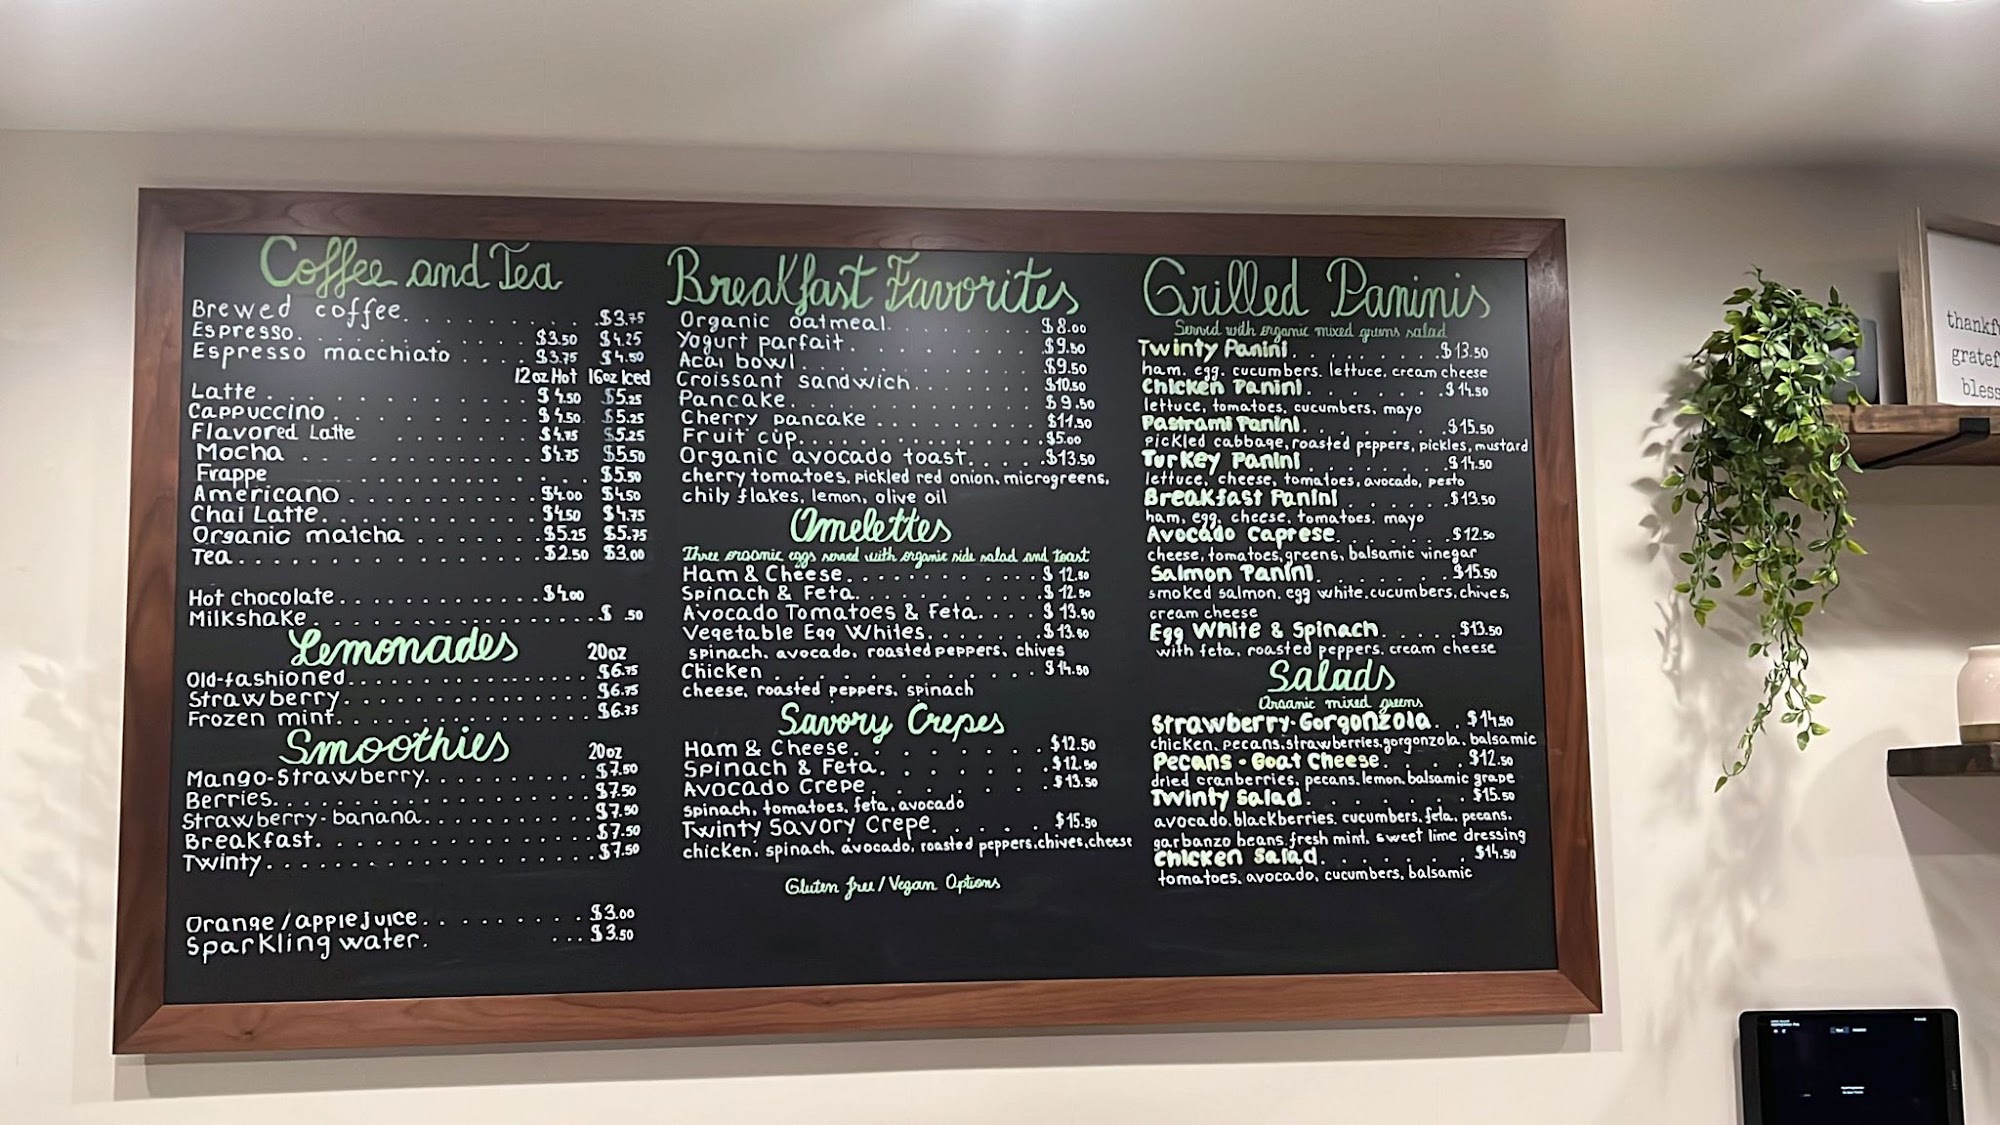 Coffee and Tea
Brewed coffee. . . . . . . . . . .$3.75
Espresso. . . . . . . . . . . $3.50 $4.25
Espresso macchiato . . . . $3.75 $4.50
12oz Hot 16oz Iced
Latte . . . . . . . . . . . . $4.50 $5.25
Cappuccino . . . . . . . . . $4.50 $5.25
Flavored Latte . . . . . . . $4.75 $5.25
Mocha . . . . . . . . . . . $4.75 $5.50
Frappe . . . $5.50
Americano . . . . . . . . . $4.00 $4.50
Chai Latte. . . . . . . . . . $4.50 $4.75
Organic matcha . . . . . . . $5.25 $5.75
Tea. . . . . . . . . . . . . $2.50 $3.00
Hot chocolate. . . . . . . . . . . .$4.00
Milkshake. . . . . . . . . . . . . . . .$ .50
Lemonades 20oz
Old-fashioned. . . . . . . . . . . . . $6.75
Strawberry. . . . . . . . . . . . . . $6.75
Frozen mint. . . . . . . . . . . . . $6.75
Smoothies 20oz
Mango-Strawberry. . . . . . . . . $7.50
Berries. . . . . . . . . . . . . . . .$7.50
Strawberry-banana. . . . . . . . . $7.50
Breakfast. . . . . . . . . . . . . . $7.50
Twinty. . . . . . . . . . . . . . . .$7.50
Orange/apple juice. . . . . . . . .$3.00
Sparkling water. ...$3.50
Breakfast Favorites
Organic oatmeal. . . . . . . . $8.00
Yogurt parfait. . . . . . . . . .$9.50
Acai bowl. . . . . . . . . . . .$9.50
Croissant sandwich. . . . . . .$10.50
Pancake. . . . . . . . . . . . $9.50
Cherry pancake . . . . . . . . $11.50
Fruit cup. . . . . . . . . . . .$5.00
Organic avocado toast. . . . .$13.50
cherry tomatoes, pickled red onion, microgreens,
chily flakes, lemon, olive oil
Omelettes
Three organic eggs served with organic side salad and toast
Ham & Cheese. . . . . . . . . . . $12.50
Spinach & Feta. . . . . . . . . . .$12.50
Avocado Tomatoes & Feta. . . . $13.50
Vegetable Egg Whites. . . . . . .$13.50
spinach, avocado, roasted peppers, chives
Chicken . . . . . . . . . . . . . $14.50
cheese, roasted peppers, spinach
Savory Crepes
Ham & Cheese. . . . . . . . . $12.50
Spinach & Feta. . . . . . . . .$12.50
Avocado Crepe. . . . . . . . .$13.50
spinach, tomatoes, feta, avocado
Twinty Savory Crepe. . . . . $15.50
chicken, spinach, avocado, roasted peppers, chives, cheese
Gluten free/Vegan Options
Grilled Paninis
Served with organic mixed greens salad
Twinty Panini. . . . . . . .$13.50
ham, egg, cucumbers, lettuce, cream cheese
Chicken Panini. . . . . . . .$14.50
lettuce, tomatoes, cucumbers, mayo
Pastrami Panini. . . . . . .$15.50
pickled cabbage, roasted peppers, pickles, mustard
Turkey Panini . . . . . . . $14.50
lettuce, cheese, tomatoes, avocado, pesto
Breakfast Panini . . . . . .$13.50
ham, egg, cheese, tomatoes, mayo
Avocado Caprese. . . . . . .$12.50
cheese, tomatoes, greens, balsamic vinegar
Salmon Panini. . . . . . . .$15.50
smoked salmon, egg white, cucumbers, chives,
cream cheese
Egg White & Spinach. . . . .$13.50
with feta, roasted peppers, cream cheese
Salads
Organic mixed greens
Strawberry-Gorgonzola. . $14.50
chicken, pecans, strawberries, gorgonzola, balsamic
Pecans - Goat Cheese. . . . .$12.50
dried cranberries, pecans, lemon, balsamic grape
Twinty Salad. . . . . . . . $15.50
avocado, blackberries, cucumbers, feta, pecans,
garbanzo beans, fresh mint, sweet lime dressing
Chicken Salad. . . . . . . $14.50
tomatoes, avocado, cucumbers, balsamic